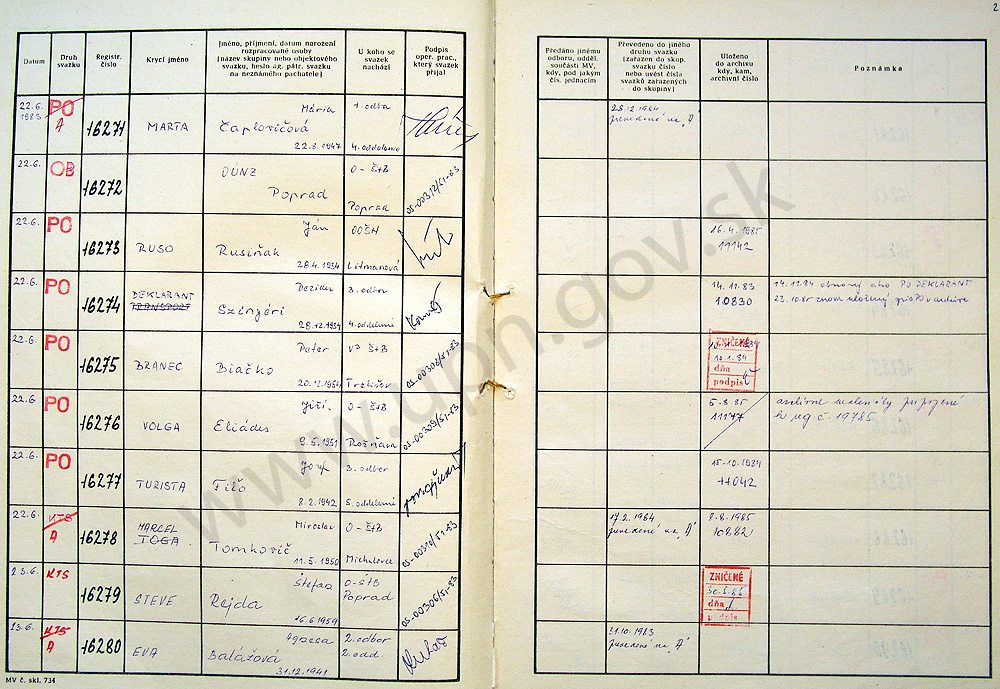 2
Datum
Druh
svazku
Registr.
číslo
Krycí jméno
Jméno, příjmení, datum narození
rozpracované osoby
[název skupiny nebo objektového
svazku, heslo ag. pátr. svazku
na neznámého pachatele]
U koho se
svazek
nachází
Podpis
oper. prac.,
který svazek
přijal
Předáno jinému
odboru, odděl.
součásti MV,
kdy, pod jakým
čís. jednacím
Převedeno do jiného
druhu svazku
[zařazen do skup.
svazku číslo
nebo uvést čísla
svazků zařazených
do skupiny]
Uloženo
do archivu
kdy, kam,
archivní číslo
Poznámka
22.6.
1983
PO
A
16271
MARTA
Mária
Čaplovičová
22.8.1947
1. odbor
4. oddelenie
28.12.1984
prevedené na "A"
22.6.
OB
16272
DÚNZ
Poprad
O-ŠtB
Poprad
OS-00312/51-83
22.6.
PO
16273
RUSO
Ján
Rusiňák
28.4.1934
OOŠH
Litmanová
16.4.1985
11142
22.6.
PO
16274
DEKLARANT
TRANSPORT
Dezider
Szényéri
28.12.1934
3. odbor
4. oddelenie
14.11.83
10830
14.11.84 obnovený ako PO DEKLARANT
22.10.85 znova uložený
22.6.
PO
16275
BRANEC
Peter
Biačko
20.12.1954
ŠtB
Trebišov
OS-00306/51-83
ZNIČENÉ
10.1.84
dňa
podpis
22.6.
PO
16276
VOLGA
Jiří
Eliádes
9.5.1951
O-ŠtB
Rožňava
OS-00309/51-83
5.8.85
11177
archívne materiály pripojené
k reg. č. 19785
22.6.
PO
16277
TURISTA
Jozef
Fiľo
8.2.1942
3. odbor
5. oddelenie
15.10.1984
11042
22.6.
KTS
A
16278
MARCEL
TOGA
Miroslav
Tomkovič
11.5.1950
O-ŠtB
Michalovce
OS-00310/51-83
17.2.1984
prevedené na "A"
8.8.1985
10882
23.6.
KTS
16279
STEVE
Štefan
Rejda
16.6.1959
O-ŠtB
Poprad
OS-00306/51-83
ZNIČENÉ
30.5.85
dňa
podpis
23.6.
KTS
A
16280
EVA
Agnesa
Balážová
31.12.1941
2. odbor
2. odd.
31.10.1983
prevedené na "A"
MV č. skl. 734
www.upn.gov.sk